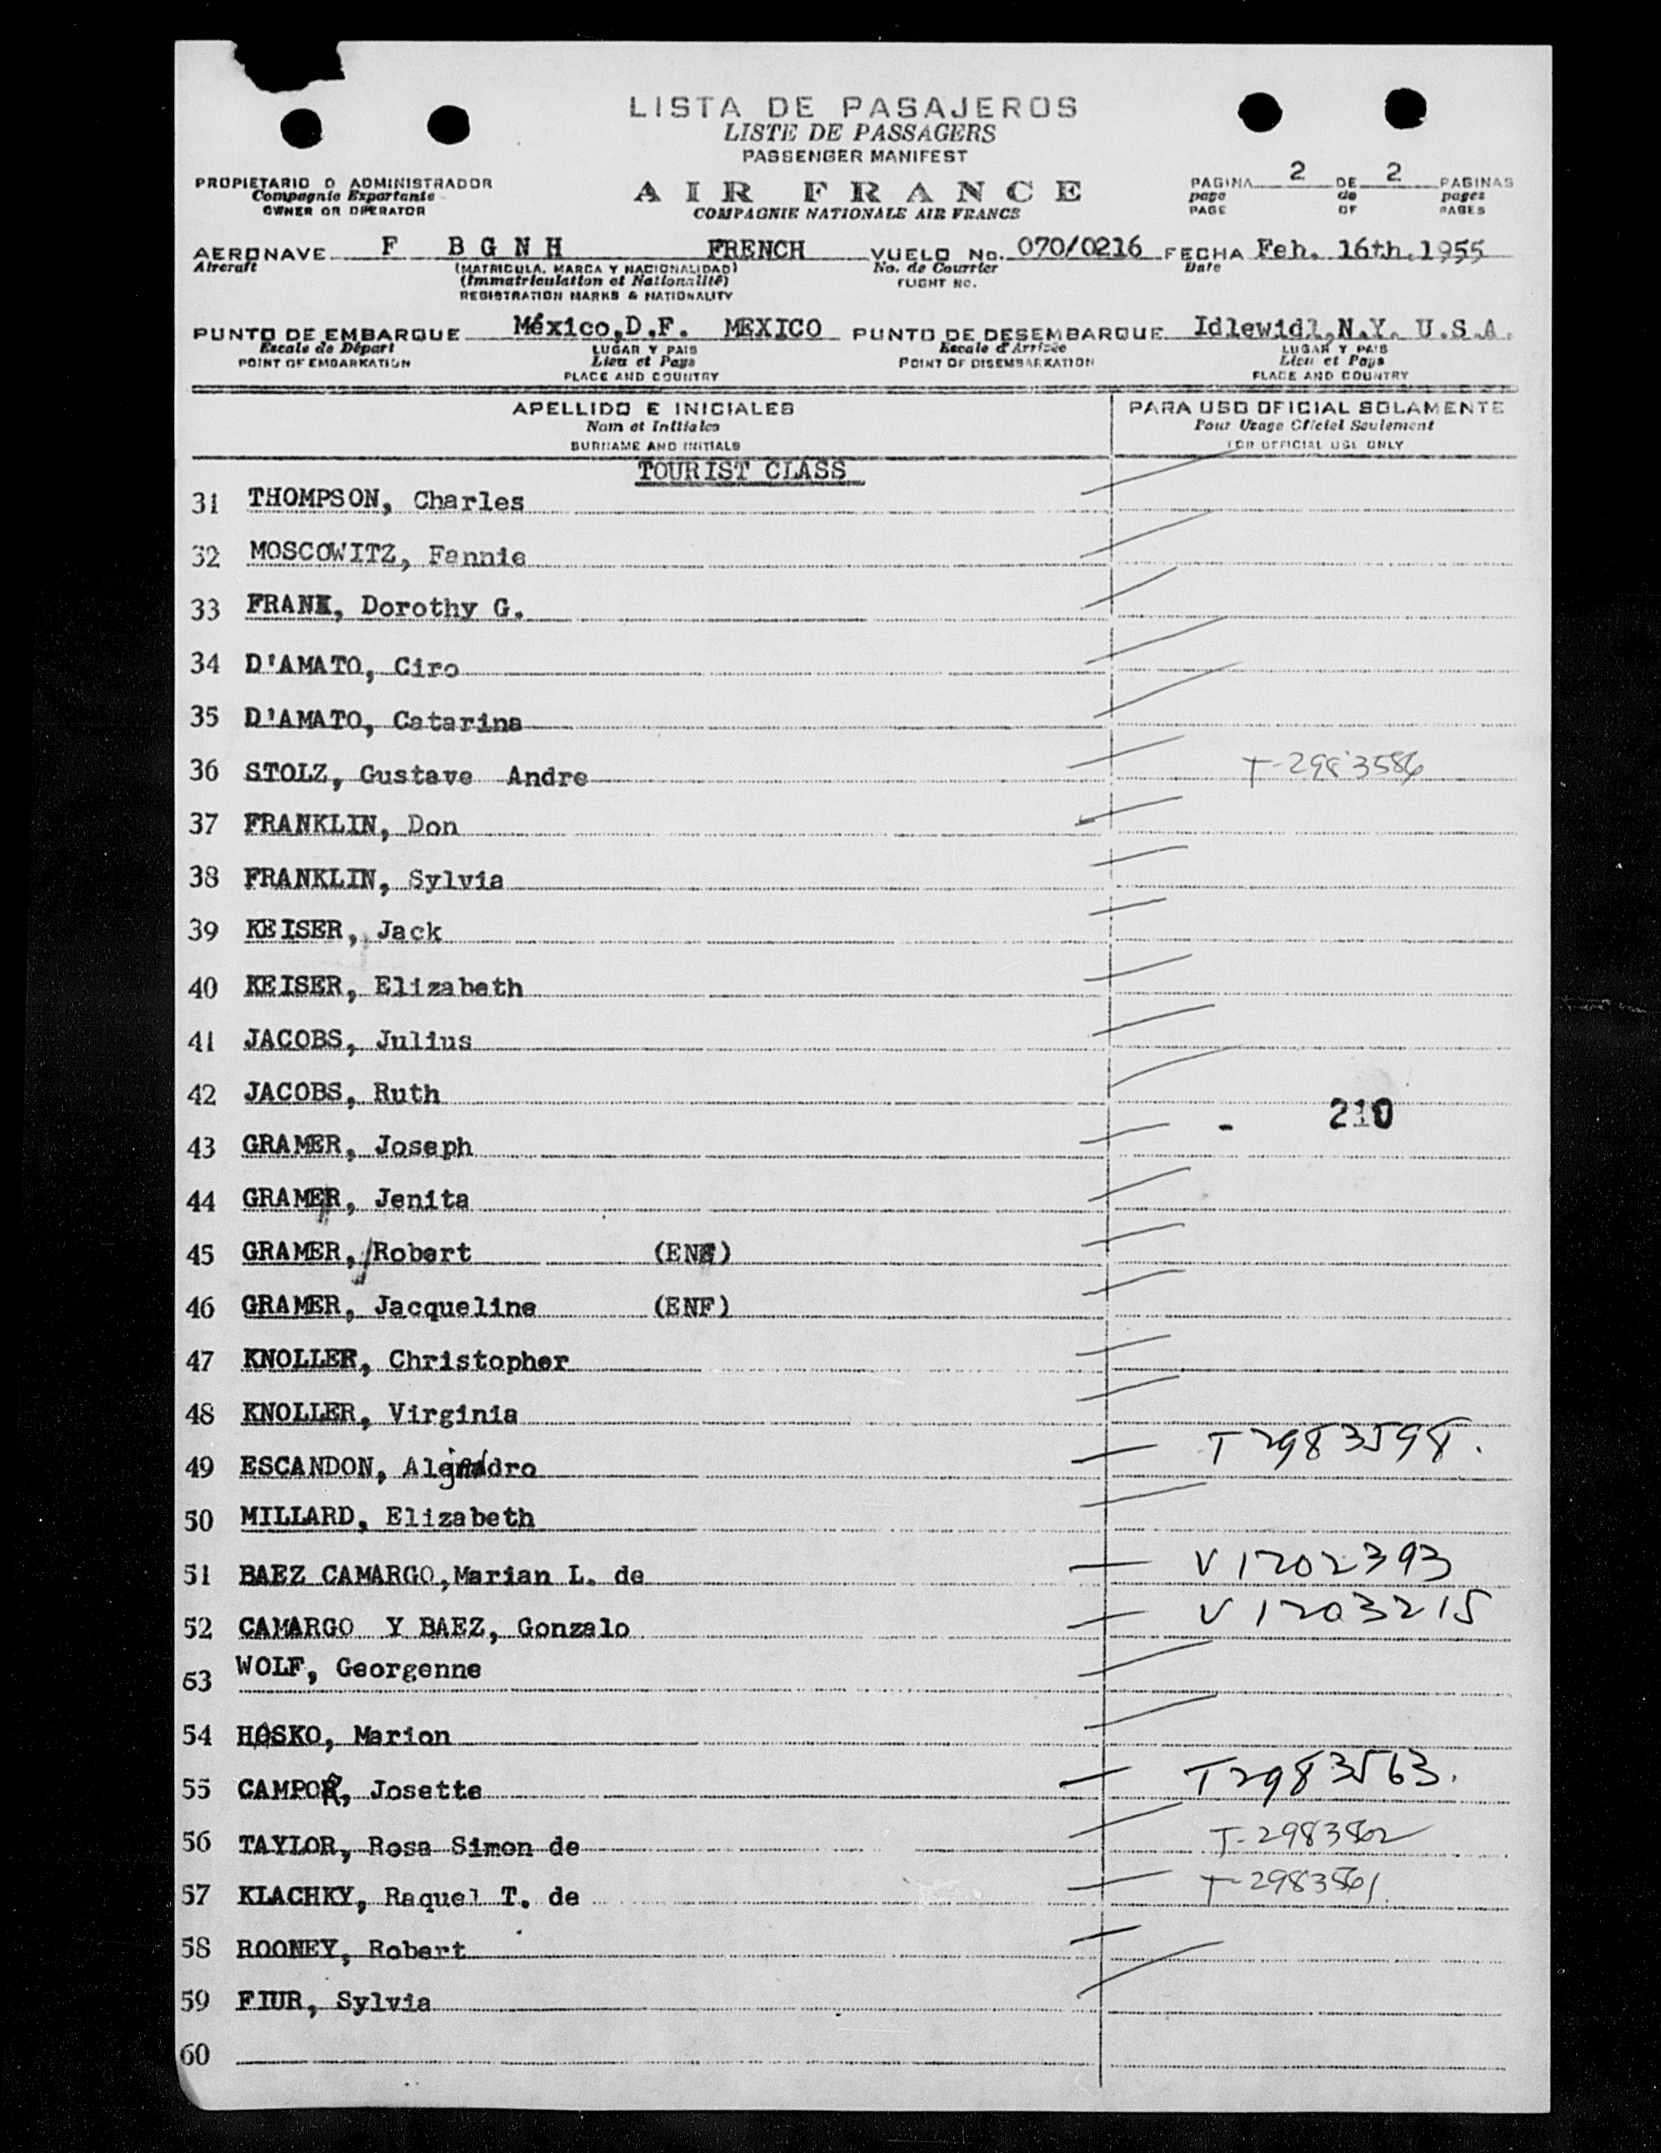 LISTA DE PASAJEROS
LISTE DE PASSAGERS
PASSENGER MANIFEST
PROPIETARIO O ADMINISTRADOR
Compagnie Exportante
OWNER OR OPERATOR
AIR FRANCE
COMPAGNIE NATIONALE AIR FRANCE
PAGINA 2 DE 2 PAGINAS
page de pages
PAGE OF PAGES
AERONAVE F BGNH FRENCH VUELO No. 070/0216 FECHA Feb. 16th.1955
Aircraft (MATRICULA, MARCA Y NACIONALIDAD) No. de Courrier Date
(Immatriculation et Nationalité) FLIGHT NO.
REGISTRATION MARKS & NATIONALITY
PUNTO DE EMBARQUE México,D.F. MEXICO PUNTO DE DESEMBARQUE Idlewidl,N.Y. U.S.A.
Escale de Départ LUGAR Y PAIS Escale d'Arrivée LUGAR Y PAIS
POINT OF EMBARKATION Lieu et Pays POINT OF DISEMBARKATION Lieu et Pays
PLACE AND COUNTRY PLACE AND COUNTRY
APELLIDO E INICIALES PARA USO OFICIAL SOLAMENTE
Nom et Initiales Pour Usage Officiel Seulement
SURNAME AND INITIALS FOR OFFICIAL USE ONLY
TOURIST CLASS
31 THOMPSON, Charles
32 MOSCOWITZ, Fannie
33 FRANK, Dorothy G.
34 D'AMATO, Ciro
35 D'AMATO, Catarina
36 STOLZ, Gustave Andre T-2983586
37 FRANKLIN, Don
38 FRANKLIN, Sylvia
39 KEISER, Jack
40 KEISER, Elizabeth
41 JACOBS, Julius
42 JACOBS, Ruth
- 210
43 GRAMER, Joseph
44 GRAMER, Jenita
45 GRAMER, Robert (ENF)
46 GRAMER, Jacqueline (ENF)
47 KNOLLER, Christopher
48 KNOLLER, Virginia
49 ESCANDON, Alejandro T2983598.
50 MILLARD, Elizabeth
51 BAEZ CAMARGO,Marian L. de V1202393
52 CAMARGO Y BAEZ, Gonzalo V1203215
53 WOLF, Georgenne
54 HOSKO, Marion
55 CAMPOR, Josette T2983563.
56 TAYLOR, Rosa Simon de
57 KLACHKY, Raquel T. de T-2983561
58 ROONEY, Robert
59 FIUR, Sylvia
60